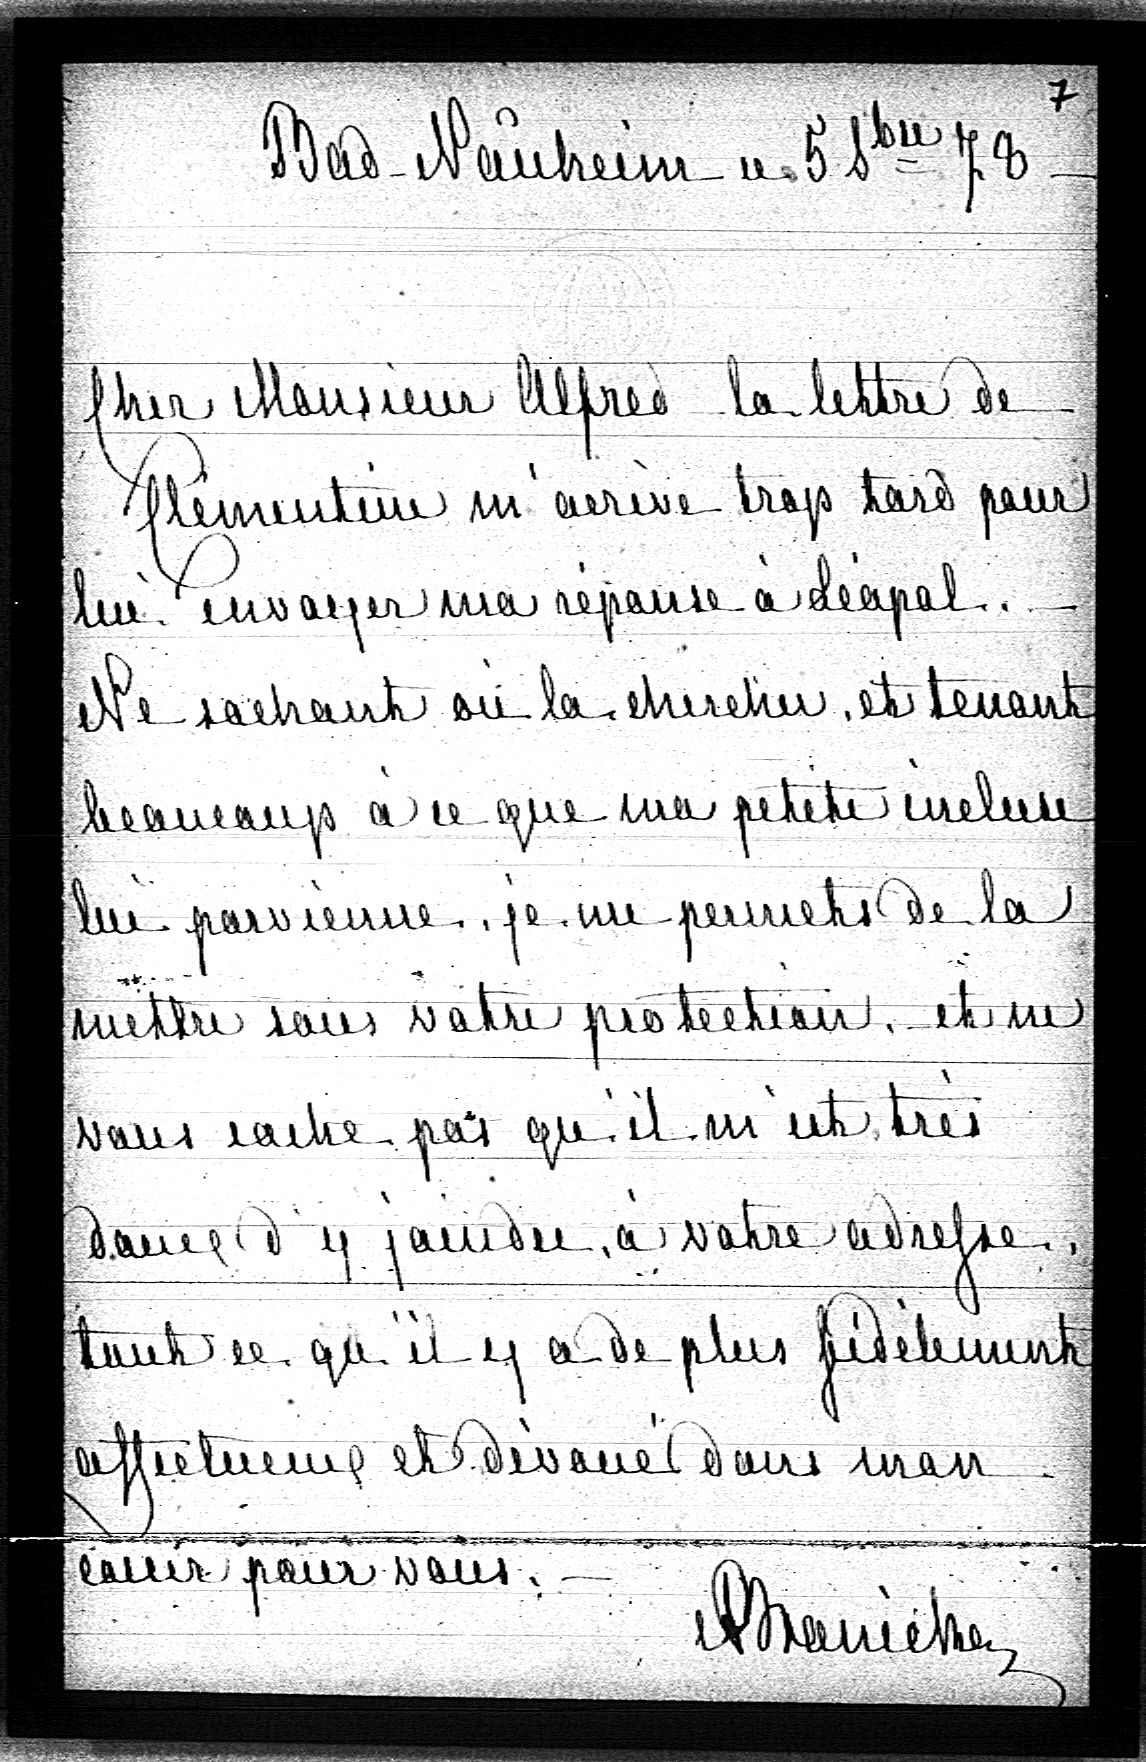 7
Bad-Nauheim ce 5 8bre 78
Cher Monsieur Alfred la lettre de
Clémentine m'arrive trop tard pour
lui envoyer ma réponse à Léopol.
Ne sachant où la chercher, et tenant
beaucoup à ce que ma petite incluse
lui parvienne, je me permets de la
mettre sous votre protection, et ne
vous cache pas qu'il m'est très
doux d'y joindre, à votre adresse,
tout ce qu'il y a de plus fidèlement
affectueux et dévoué dans mon
coeur pour vous. —